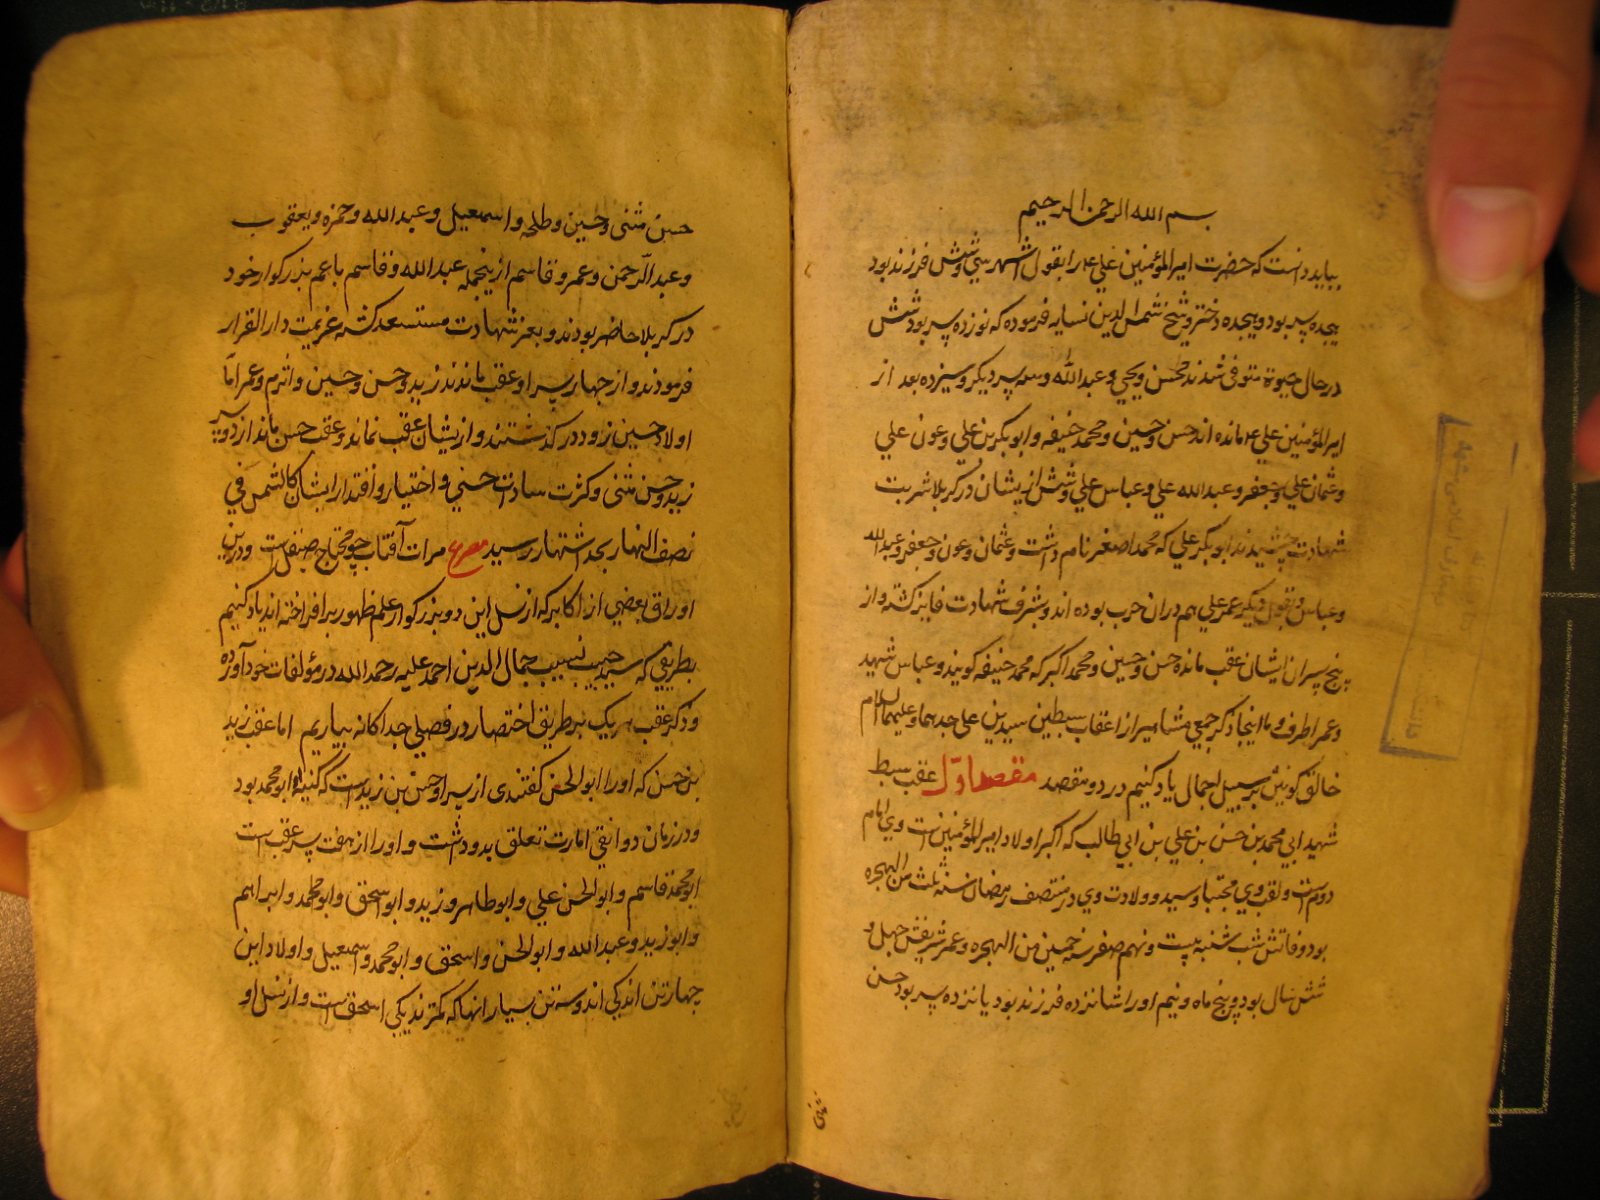 بسم الله الرحمن الرحیم
بباید دانست که حضرت امیر المؤمنین علی ع م را بقول اشهر سی و شش فرزند بود
هجده پسر بود و هجده دختر و شیخ شمس الدین نسابه فرموده که نوزده پسر بود شش
در حال حیوة متوفی شدند محسن و یحیی و عبدالله و سه پسر دیگر و سیزده بعد از
امیر المؤمنین علی ع م مانده اند حسن و حسین و محمد حنیفه و ابوبکر بن علی و عون علی
و عثمان علی و جعفر و عبدالله علی و عباس علی و شش از یشان در کربلا شربت
شهادت چشیدند ابوبکر علی که محمد اصغر نام داشت و عثمان و عون و جعفر و عبدالله
و عباس و بقول دیگر عمر علی هم دران حرب بوده اند و بشرف شهادت فایز گشته و از
پنج پسران ایشان عقب مانده حسن و حسین و محمد اکبر که محمد حنیفه کویند و عباس شهید
و عمر اطرف و ما اینجا ذکر جمعی مشاهیر از اعقاب سبطین سیدین علی جدهما و علیهما السلام
خالق کونین بر سبیل اجمال یاد کنیم در دو مقصد مقصد اول عقب سبط
شهید ابی محمد بن حسن بن علی بن ابی طالب که اکبر اولاد امیر المؤمنین است وی امام
دوم است و لقب وی مجتبا و سید و ولادت وی در منتصف رمضان سنه ثلث من الهجره
بود و فاتش شب شنبه بیست و نهم صفر سنه خمسین من الهجره و عمر شریفش چهل و
شش سال بود و پنج ماه و نیم او را شانزده فرزند بود یانزده پسر بود حسن
مثنی
حسن مثنی و حسین و طلحه و اسمعیل و عبدالله و حمزه و یعقوب
و عبد الرحمن و عمر و قاسم ازینجمله عبدالله و قاسم با عم بزرکوار خود
در کربلا حاضر بودند و بعز شهادت مستسعد کشته عزیمت دار القرار
فرمودند و از چهار پسر او عقب ماندند زید و حسن و حسین و اثرم و عمر اما
اولاد حسین زود در کذشتند و از یشان عقب نماند و عقب حسن ماند از دو پسر
زید و حسن مثنی و کثرت سادات حسنی و اختیار و اقتدار ایشان کالشمس فی
نصف النهار بحد اشتهار رسید مصرع مرات آفتاب چو محتاج صیقل است و درین
اوراق بعضی از اکابر که از نسل این دو بزرکوار علم ظهور بر افراخته اند یاد کنیم
بطریقی که سید حسیب نسیب جمال الدین احمد علیه رحمه الله در مؤلفات خود آورده
و ذکر عقب هر یک بر طریق اختصار در فصلی جداکانه بیاریم اما عقب زید
بن حسن که او را ابوالحسن کفتندی از پسر او حسن بن زید است که کنیه او ابو محمد بود
و در زمان دوانقی امارت تعلق بدو داشت و او را از هفت پسر عقب است
ابو محمد قاسم و ابو الحسن علی و ابو طاهر و زید و ابو اسحق و ابو محمد و ابراهیم
و ابو زید و عبدالله و ابو الحسن و اسحق و ابو محمد و اسمعیل و اولاد این
چهار تن اندکی اند و سه تن بسیار انها که کمترند یکی اسحق است و از نسل او